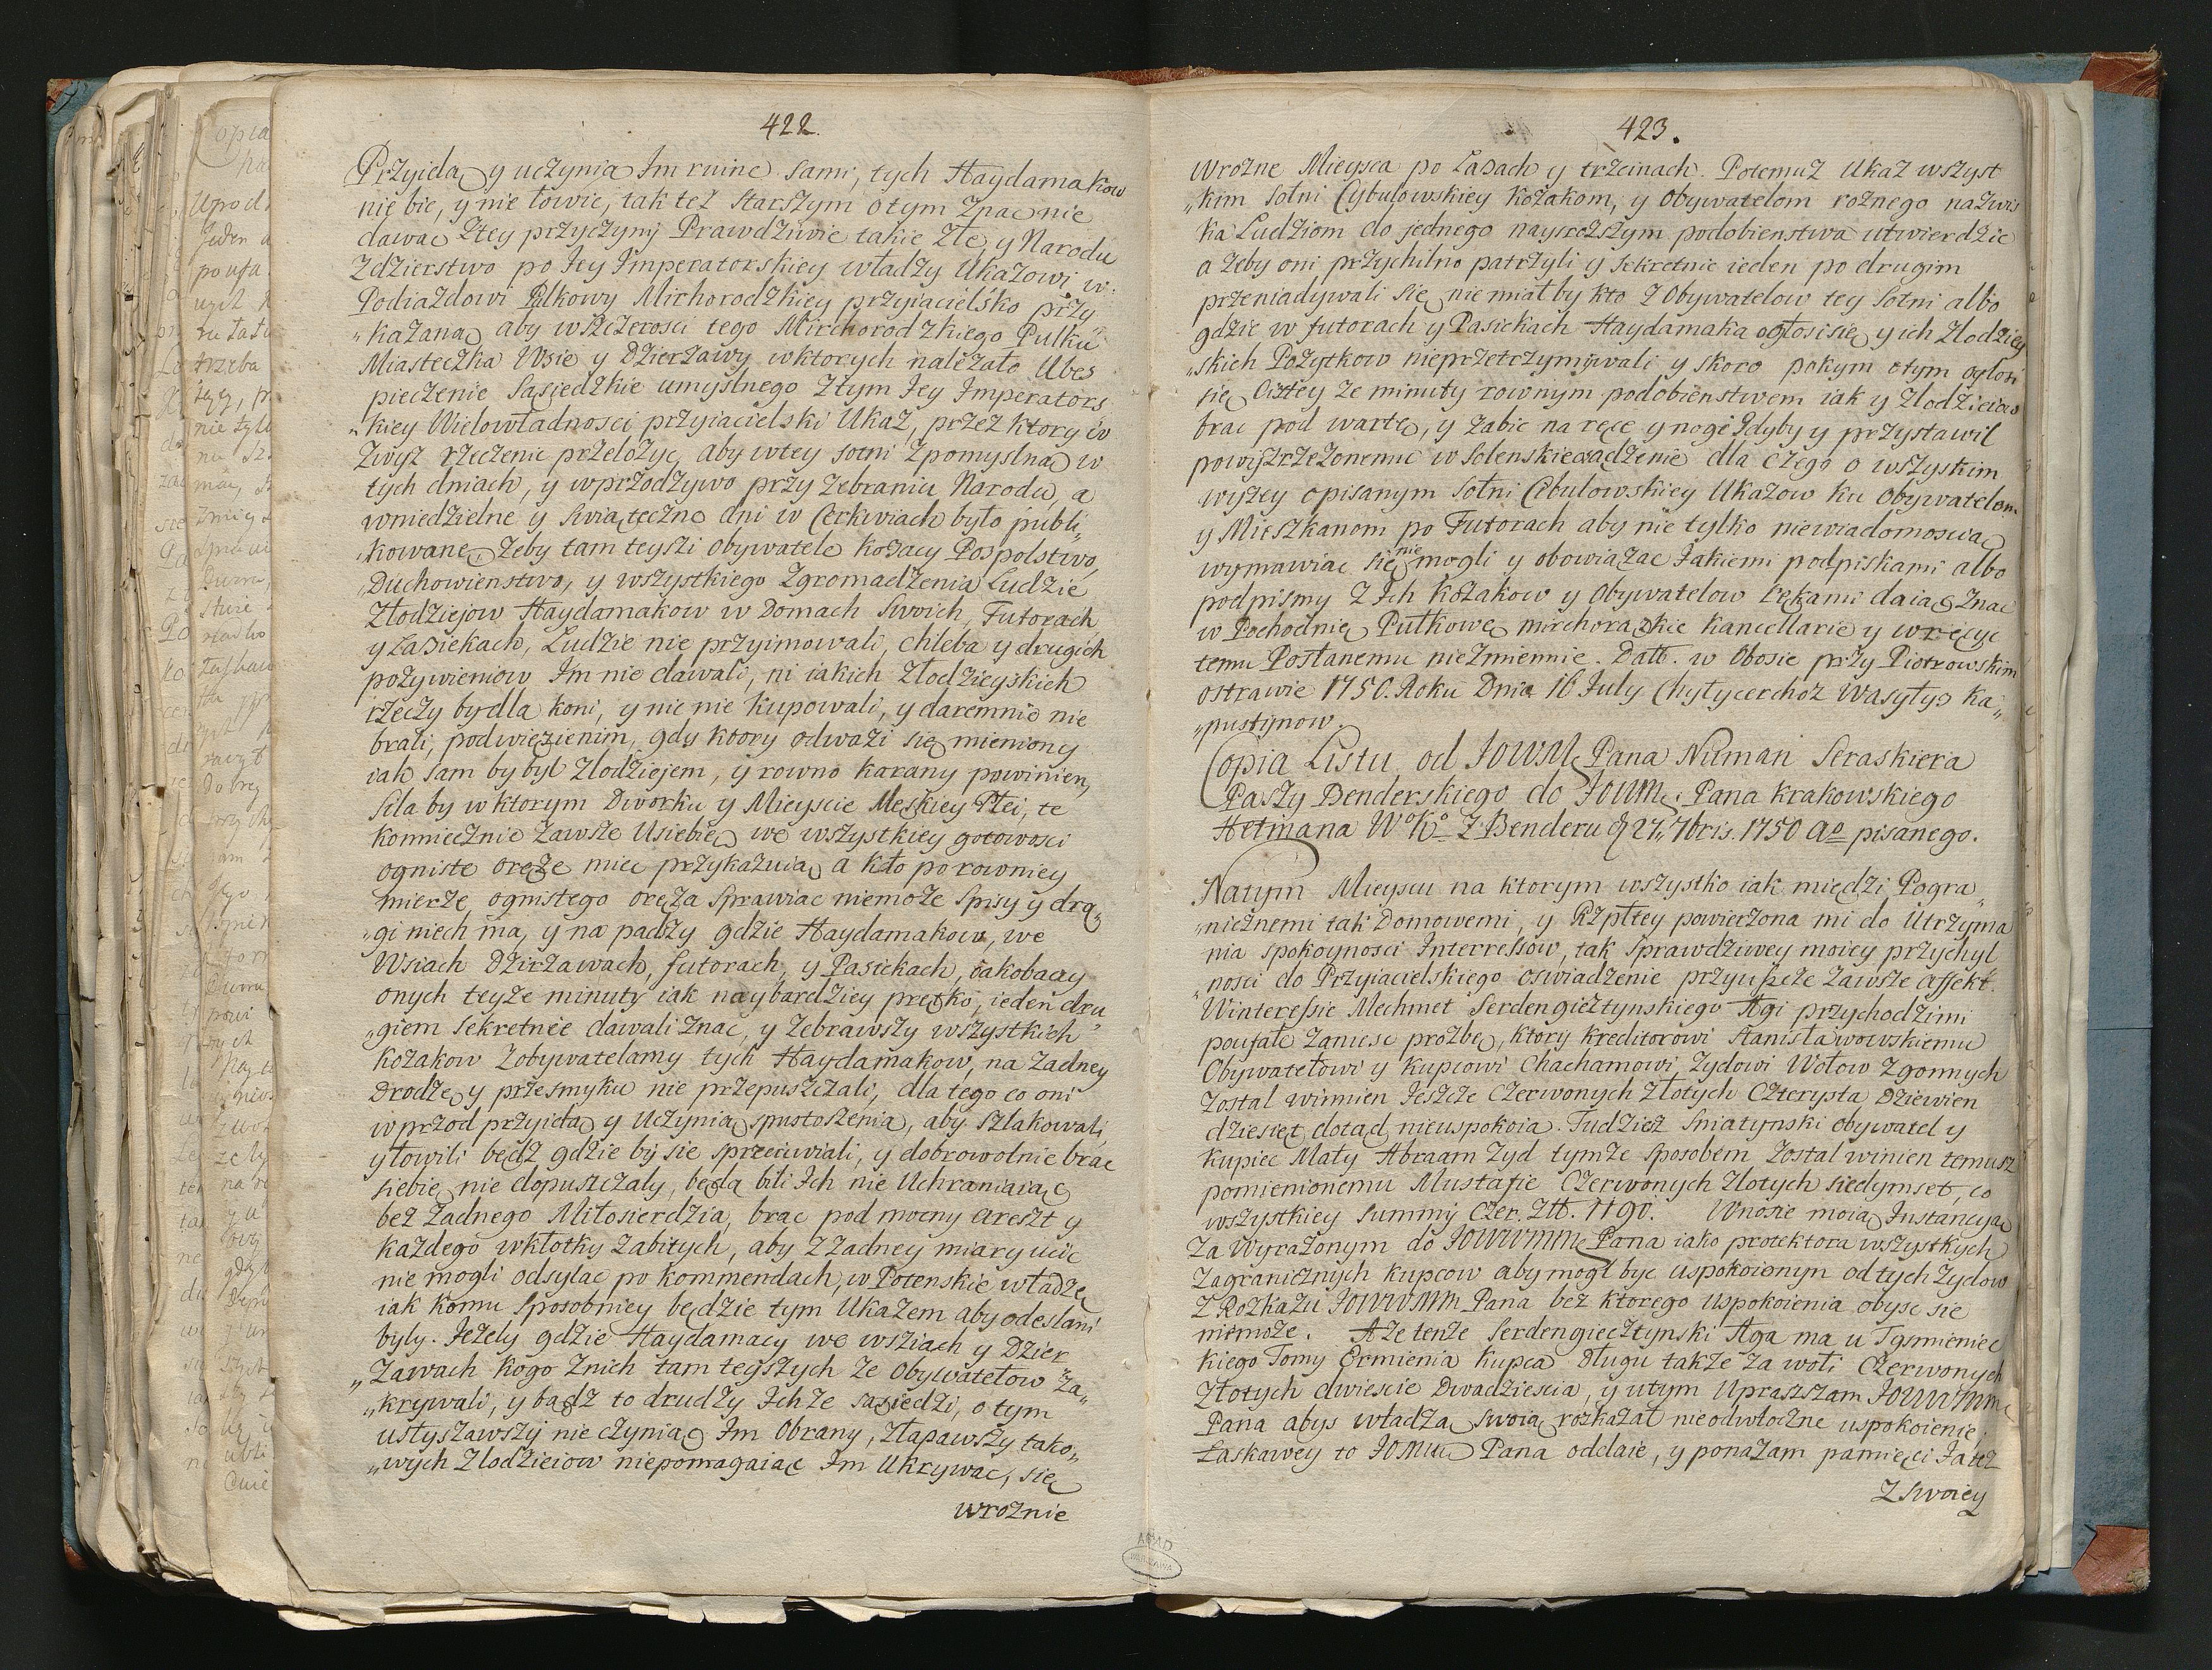 422.
Przyidą y uczynią Im ruinę sami, tych Haydamakow
nie bic, y nie łowic, tak też starszym o tym znac nie
dawac z tey przyczyny Prawdziwie takie złe, y Narodu
Zdzierstwo po Jey Imperatorskiey władzy Ukazowi w
Podiazdowi Pulkowy Mirhorodzkiey przyiacielsko przy
„kazana, aby wszczerosci tego Mirchorodzkiego Pulku
Miasteczka Wsie y Dzierzawy w ktorych należało Ubes
pieczenie Sąsiedzkie umyslnego z tym Jey Imperators
„kiey Wielowładnosci przyiacielski Ukaz, przez ktory io
zwyż rzeczenie przełożyc, aby w tey sotni z pomyslną w
tych dniach, y w przodzywo przy zebraniu Narodu, a
w niedzielne y swiąteczne dni w Cerkwiach było publi„
„kowane, żeby tam teyszi obywatele kozacy Pospolstwo,
„Duchowienstwo, y wszystkiego Zgromadzenia Ludzie
Złodziejow Haydamakow w Domach Swoich, Futorach
y Łasiekach, Ludzie nie przyimowali, chleba y drugich
pożywieniow Im nie dawali, ni iakich złodzieyskich
rzeczy bydła koni, y nic nie kupowali, y daremnie nie
brali, pod więzienim, gdy ktory odważi się mieniony
iak sam by był złodziejem, y rowno karany powinien,
siła by w ktorym Dworku y Mieyscie Męskiey Płci, te
konniecznie zawsze u siebie we wszystkiey gotowosci
ogniste oręże miec przykazuią, a kto po rowniey
mierze ognistego oręża sprawiac niemoże spisy y drą„
„gi niech ma, y na padzy gdzie Haydamakow, we
Wsiach Dzirzawach, futorach, y Pasiekach, iakobacy
onych teyże minuty iak naybardziey prętko, ieden dru„
„giem sekretnie dawali znac, y zebrawszy wszystkich
kozakow z obywatelamy tych Haydamakow, na żadney
Drodze, y przesmyku nie przepuszczali, dla tego co oni
w przod przyidą y uczynią spustoszenia, aby szlakowali,
y łowili będz gdzie by sie sprzeciwiali, y dobrowolnie brac
siebie nie dopuszczały, będą bili Ich nie Uchraniaiąc
bez żadnego Miłosierdzia, brac pod mocny areszt y
każdego w kłotky zabitych, aby z żadney miary uciic
nie mogli odsylac po kommendach, w Potenskie władzę
iak komu sposobniey będzie tym Ukazem aby odeslani
byly. Jeżely gdzie Haydamacy we wsziach y Dzier
„zawach kogo z nich tam teyszych ze Obywatelow za„
„krywali, y bądz to drudzy Ich że sąsiedzi, o tym
usłyszawszy nie czynią Im Obrany, złapawszy tako„
„wych złodzieiow nie pomagaiąc Im Ukrywac, się
wroznie
423.
Wrozne Mieysca po Łasach y trzcinach. Potemuż Ukaz wszyst
„kim sotni Cybulowskiey kozakom, y Obywatelom roznego nazwis
ka Ludziom do jednego naysroższym podobienstwa utwierdzic
a żeby oni przychilno patrzyli y sekretnie ieden po drugim
przeniadywali się, nie miałby kto z Obywatelow tey sotni albo
gdzie w futorach y Pasiekach Haydamaka ogłosi się, y ich złodziey
„skich Pożytkow nieprzetrzymywali y skoro pokym o tym ogłosi
się Oistey że minuty rownym podobienstwem iak y złodzieiow
brac pod wartę, y zabic na ręce y nogi gdyby y przystawil
powyżrzeżonemu w Solenskie sądzenie dla czego o wszystkim
wyzey opisanym sotni Cebulowskiey Ukazow ku Obywatelom
y Mieszkanom po Futorach aby nie tylko niewiadomoscią
wymawiac się nie mogli y obowiązac Jakiemi podpiskami albo
podpismy z Ich kozakow y Obywatelow Łękami daią Znac
w Pochodnię Pułkowe mirchorazkie kancellarie y w ręcye
temu Posłanemu nieżmiennie. Datt. w Obosie przy Piotrowskim
ostrawie 1750. Roku Dnia 16 July Chytycerchoz Wasyłys Ka„
„pustynow.
Copia Listu od JOWM Pana Numan Seraskiera
Paszy Benderskiego do JOWM Pana krakowskiego
Hetmana Wo Ko. z Benderu d 27„ 7bris. 1750 Ao pisanego.
Na tym Mieyscu na ktorym wszystko iak między Pogra„
„nicznemi tak Domowemi, y Rzpltey powierzona mi do Utrzyma
nia spokoynosci Interressow, tak sprawdziwey moiey przychyl
„nosci do Przyiacielskiego oswiadzenie przyuszcze zawsze affekt.
W interessie Mechmet Serdengieztynskiego Agi przychodzi mi
poufałe zaniesc prozbę, ktory kreditorowi Stanisławowskiemu
Obywatelowi y kupcowi Chachamowi Zydowi Wołow zgonnych
został winnien Jeszcze czerwonych złotych czterysta Dziewien
dziesiet dotąd nieuspokoia. Tudziesz Sniatynski obywatel y
kupiec Mały Abraam Zyd tymże sposobem został winien temusz
pomienionemu Mustafie Czerwonych złotych siedymset, co
wszystkiey summy czer. Ztt. 1190. Wnosie moią Instancyą
za Wyrażonym do JOWWMM Pana iako protektora wszystkych
zagranicznych kupcow aby mogł byc uspokoionym od tych Zydow
z Rozkazu JOWWMM Pana bez ktorego uspokoienia obysc sie
niemoże. A że tenże Serdengiecztynski Aga ma u Tysmieniec
kiego Tomy Ormienia kupca Długu także za woli Czerwonych
Złotych dwiescie Dwadziescia, y u tym Upraszszam JOWWMM
Pana abys władzą swoią rozkazał nieodwłoczne uspokoienie,
Łaskawey to JOMW Pana oddaie, y ponazam pamięci Ja też
Z swoiey